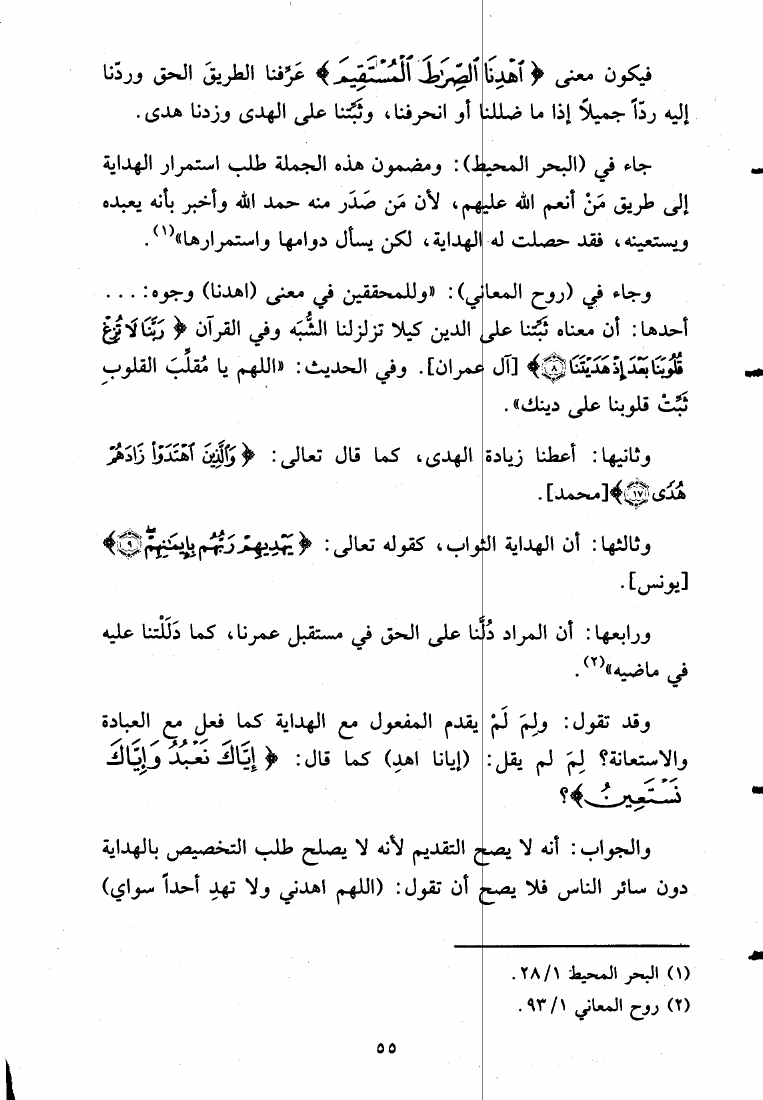 فيكون معنى ﴿ ٱهْدِنَا ٱلصِّرَٰطَ ٱلْمُسْتَقِيمَ ﴾ عَرِّفنا الطريقَ الحق وردّنا
إليه ردّاً جميلاً إذا ما ضللنا أو انحرفنا، وثَبِّتنا على الهدى وزدنا هدى.
جاء في (البحر المحيط): ومضمون هذه الجملة طلب استمرار الهداية
إلى طريق مَنْ أنعم الله عليهم، لأن مَن صَدَر منه حمد الله وأخبر بأنه يعبده
ويستعينه، فقد حصلت له الهداية، لكن يسأل دوامها واستمرارها»(١).
وجاء في (روح المعاني): «وللمحققين في معنى (اهدنا) وجوه: ...
أحدها: أن معناه ثبِّتنا على الدين كيلا تزلزلنا الشُّبَه وفي القرآن ﴿ رَبَّنَا لَا تُزِغْ
قُلُوبَنَا بَعْدَ إِذْ هَدَيْتَنَا ٨﴾ [آل عمران]. وفي الحديث: «اللهم يا مُقلِّبَ القلوبِ
ثَبِّتْ قلوبنا على دينك».
وثانيها: أعطنا زيادة الهدى، كما قال تعالى: ﴿ وَٱلَّذِينَ ٱهْتَدَوْا۟ زَادَهُمْ
هُدًى ١٧﴾[محمد].
وثالثها: أن الهداية الثواب، كقوله تعالى: ﴿ يَهْدِيهِمْ رَبُّهُم بِإِيمَٰنِهِمْ ۖ ٩﴾
[يونس].
ورابعها: أن المراد دُلَّنا على الحق في مستقبل عمرنا، كما دَلَلْتنا عليه
في ماضيه»(٢).
وقد تقول: ولِمَ لَمْ يقدم المفعول مع الهداية كما فعل مع العبادة
والاستعانة؟ لِمَ لم يقل: (إيانا اهدِ) كما قال: ﴿ إِيَّاكَ نَعْبُدُ وَإِيَّاكَ
نَسْتَعِينُ ﴾؟
والجواب: أنه لا يصح التقديم لأنه لا يصلح طلب التخصيص بالهداية
دون سائر الناس فلا يصح أن تقول: (اللهم اهدني ولا تهدِ أحداً سواي)
(١) البحر المحيط ٢٨/١.
(٢) روح المعاني ٩٣/١.
٥٥